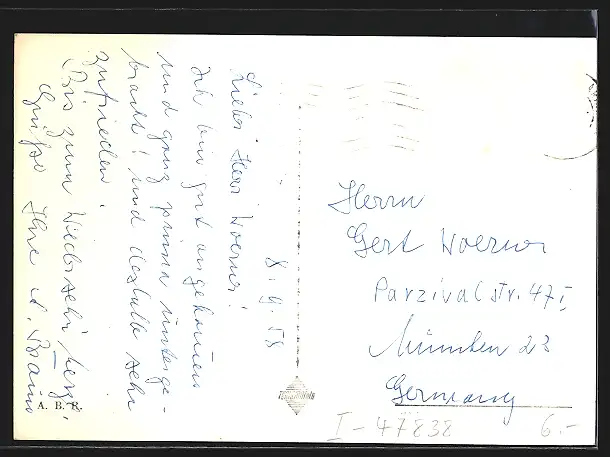 8.9.58
Lieber Herr Woerner!
Ich bin gut angekommen
und ganz prima unterge-
bracht! und deshalb sehr
zufrieden.
Bis zum Wiedersehn, herzl.
Grüße Ihre A.
A. B. R.
Herrn
Gert Woerner
Parzivalstr. 47 I
München 23
Germany
I-47838
6.-